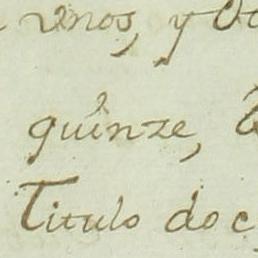 unos, y
quinze,
Titulo doc